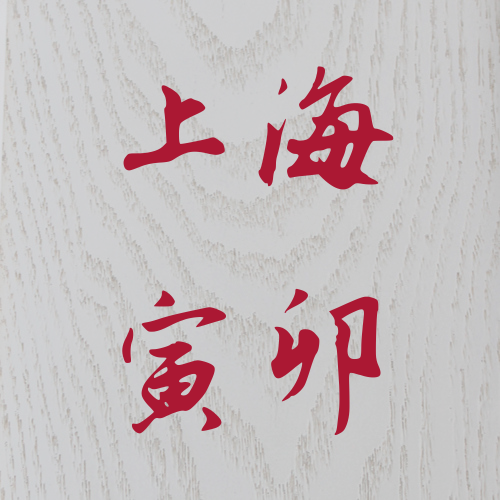 上海
寅卯